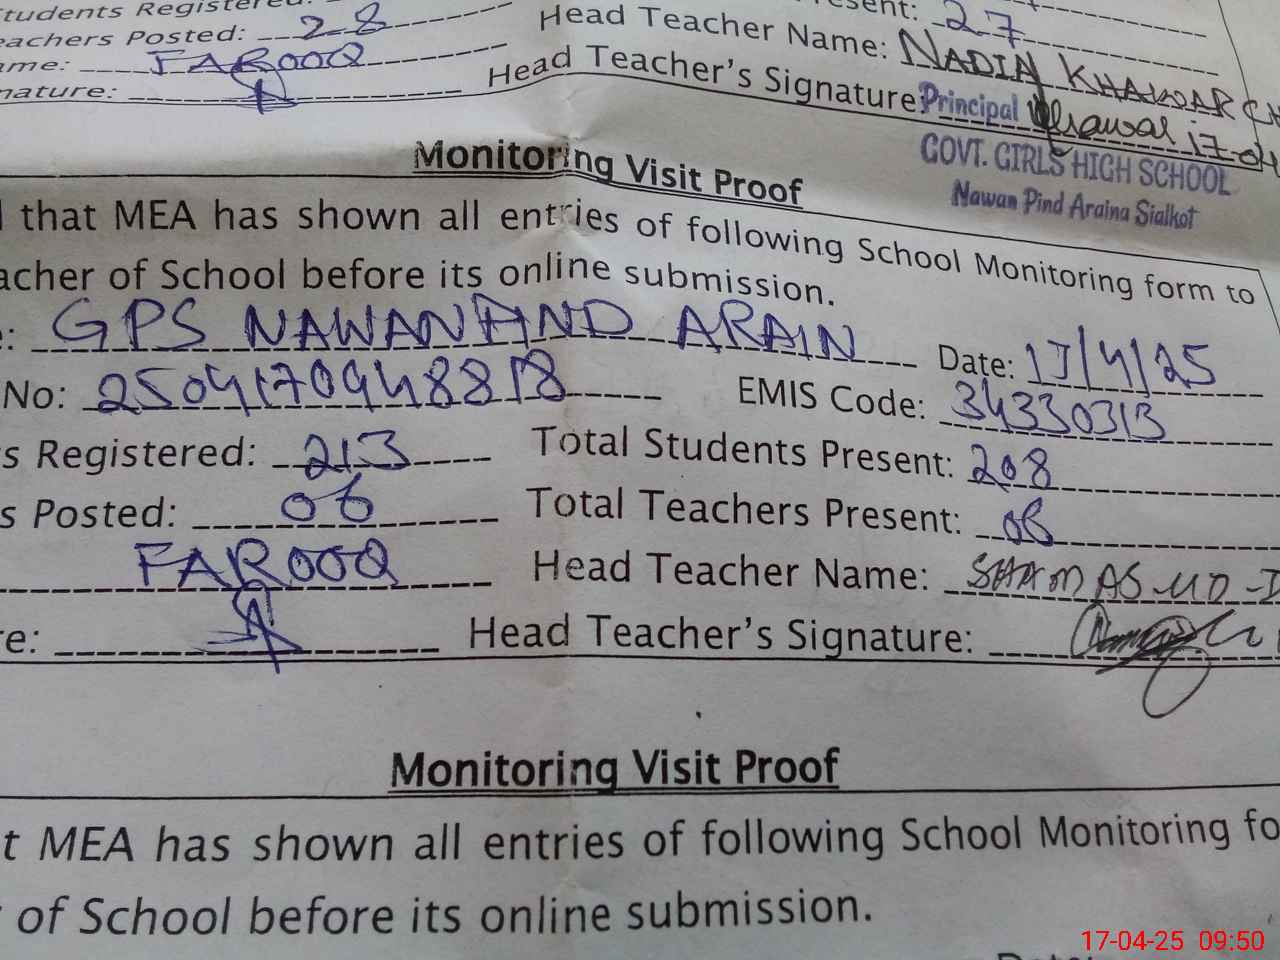 Students Registered:
Teachers Posted: 28 Present: 27
ame: FAROOQ Head Teacher Name: NADIA KHAWAR CH
nature: Head Teacher's Signature: Principal Khawar 17-04
GOVT. GIRLS HIGH SCHOOL
Nawan Pind Araina Sialkot
Monitoring Visit Proof
that MEA has shown all entries of following School Monitoring form to
acher of School before its online submission.
e: GPS NAWAN PIND ARAIN Date: 17/4/25
No: 2504170948818 EMIS Code: 34330313
s Registered: 213 Total Students Present: 208
s Posted: 06 Total Teachers Present: 06
FAROOQ Head Teacher Name: SHAMAS-UD-D
re: Head Teacher's Signature:
Monitoring Visit Proof
t MEA has shown all entries of following School Monitoring fo
of School before its online submission.
Date:
17-04-25 09:50